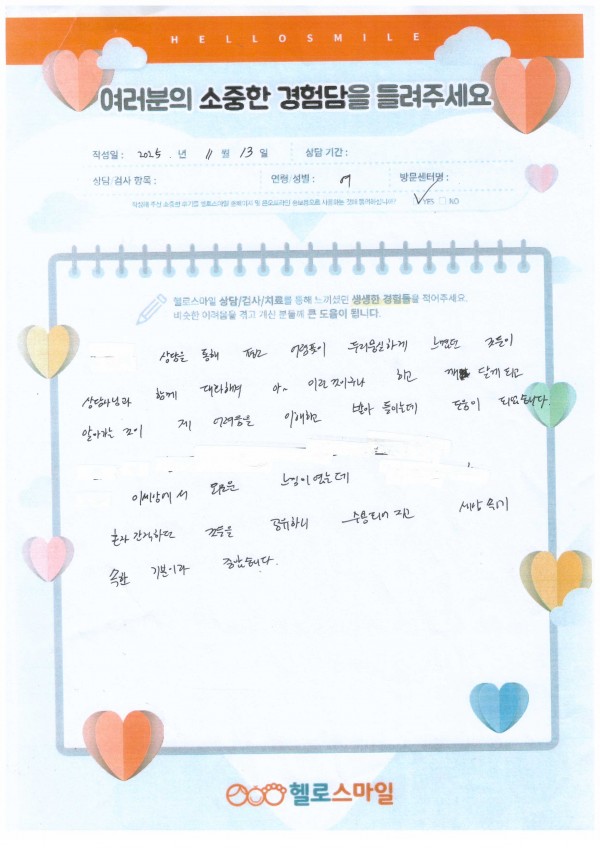 HELLOSMILE
여러분의 소중한 경험담을 들려주세요
작성일 : 2025 . 년 11 월 13 일 상담 기간 :
상담/검사 항목 : 연령/성별 : 여 방문센터명 :
작성해 주신 소중한 수기를 헬로스마일 홈페이지 및 온오프라인 홍보용으로 사용하는 것에 동의하십니까? YES NO
헬로스마일 상담/검사/치료를 통해 느끼셨던 생생한 경험들을 적어주세요.
비슷한 어려움을 겪고 계신 분들께 큰 도움이 됩니다.
상담을 통해 어렴풋이 두리뭉실하게 느꼈던 것들이
상담사님과 함께 대화하며 아~ 이런 것이구나 하고 깨닫게 되고
알아가는 것이 제 어려움을 이해하고 받아 들이는데 도움이 되었습니다.
이세상에서 외로운 느낌이 였는데
혼자 간직하던 것들을 공유하니 수용되어 지고 세상 속에
속한 기분이라 좋았습니다.
헬로스마일